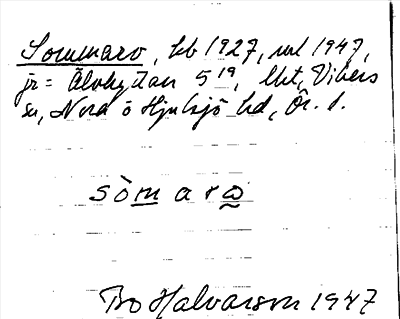 Sommaro, kb 1927, uul 1947,
jr = Älvhyttan 5¹⁹, lht, Vikers
sn, Nora o Hjulsjö hd, Ör. l.
sòmarω
Bo Halvarson 1947